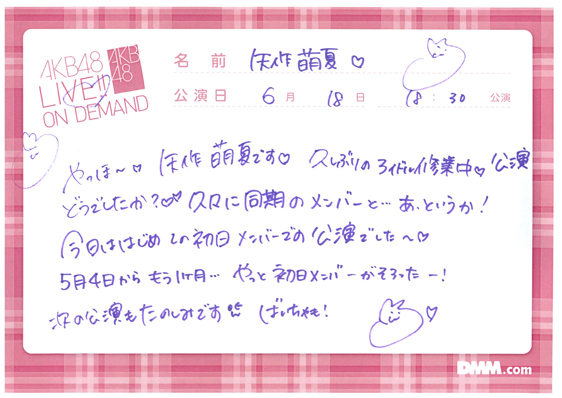 AKB48
LIVE!!
ON DEMAND
AKB
48
名前 矢作萌夏♡
公演日 6月 18日 18:30 公演
やっほ〜♡ 矢作萌夏です♡ 久しぶりのアイドル修業中♡公演
どうでしたか？♡♡ 久々に同期のメンバーと…あ、というか！
今日ははじめての初日メンバーでの公演でした〜♡
5月4日からもう1ヶ月… やっと初日メンバーがそろったー！
次の公演もたのしみです ばいちゃも！♡
DMM.com